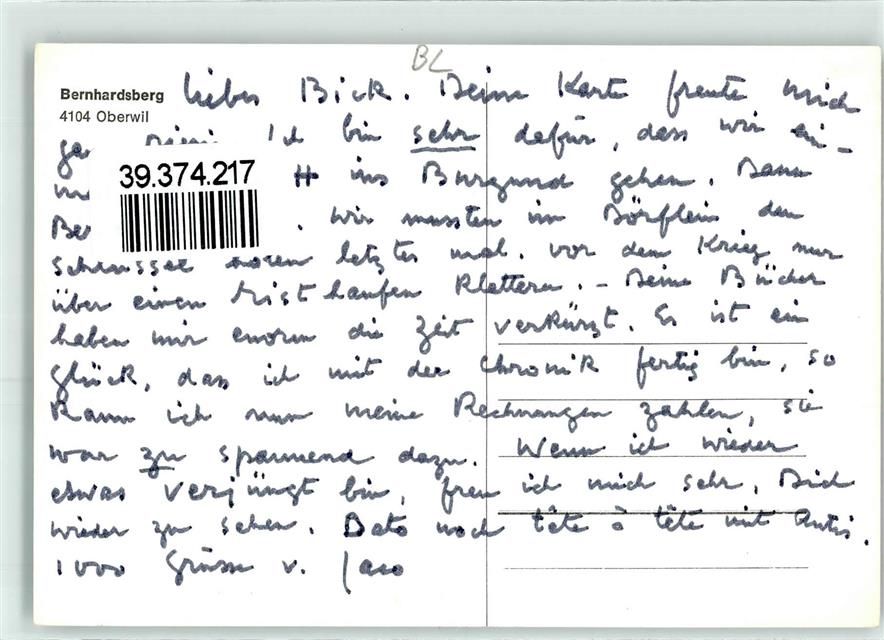 BL
Bernhardsberg
4104 Oberwil
Lieber Bick. Deine Karte freute mich
Ich bin sehr dafür, dass wir ein-
39.374.217
ins Burgund gehen. Dann
Wir mussten im Dörflein den
letztes mal. vor dem Krieg nur
über einen Misthaufen klettern. - Deine Bücher
haben mir enorm die Zeit verkürzt. Es ist ein
Glück, dass ich mit der Chronik fertig bin, so
kann ich nun meine Rechnungen zahlen, sie
war zu spannend dazu. Wenn ich wieder
etwas verjüngt bin, freu ich mich sehr, Dich
wieder zu sehen. Dato noch tête à tête mit
1000 Grüsse v.